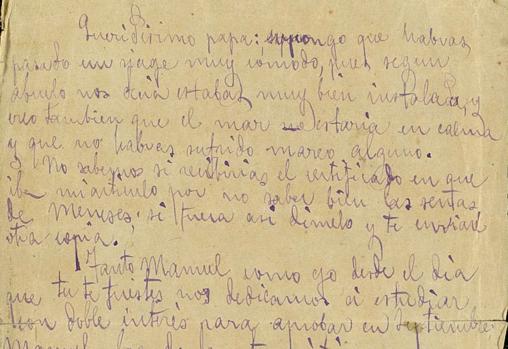 Queridísimo papa: supongo que habras
pasado un viage muy cómodo, pues segun
abuelo nos decia estabas muy bien instalado, y
creo tambien que el mar estaria en calma
y que no habras sufrido mareo alguno.
No sabemos si recibirias el certificado en que
iba mi articulo por no saber bien las señas
de Meneses. si fuera asi dimelo y te enviaré
otra copia.
Tanto Manuel como yo desde el dia
que tu te fuistes nos dedicamos a estudiar
con doble interés para aprobar en Septiembre.
Manuel